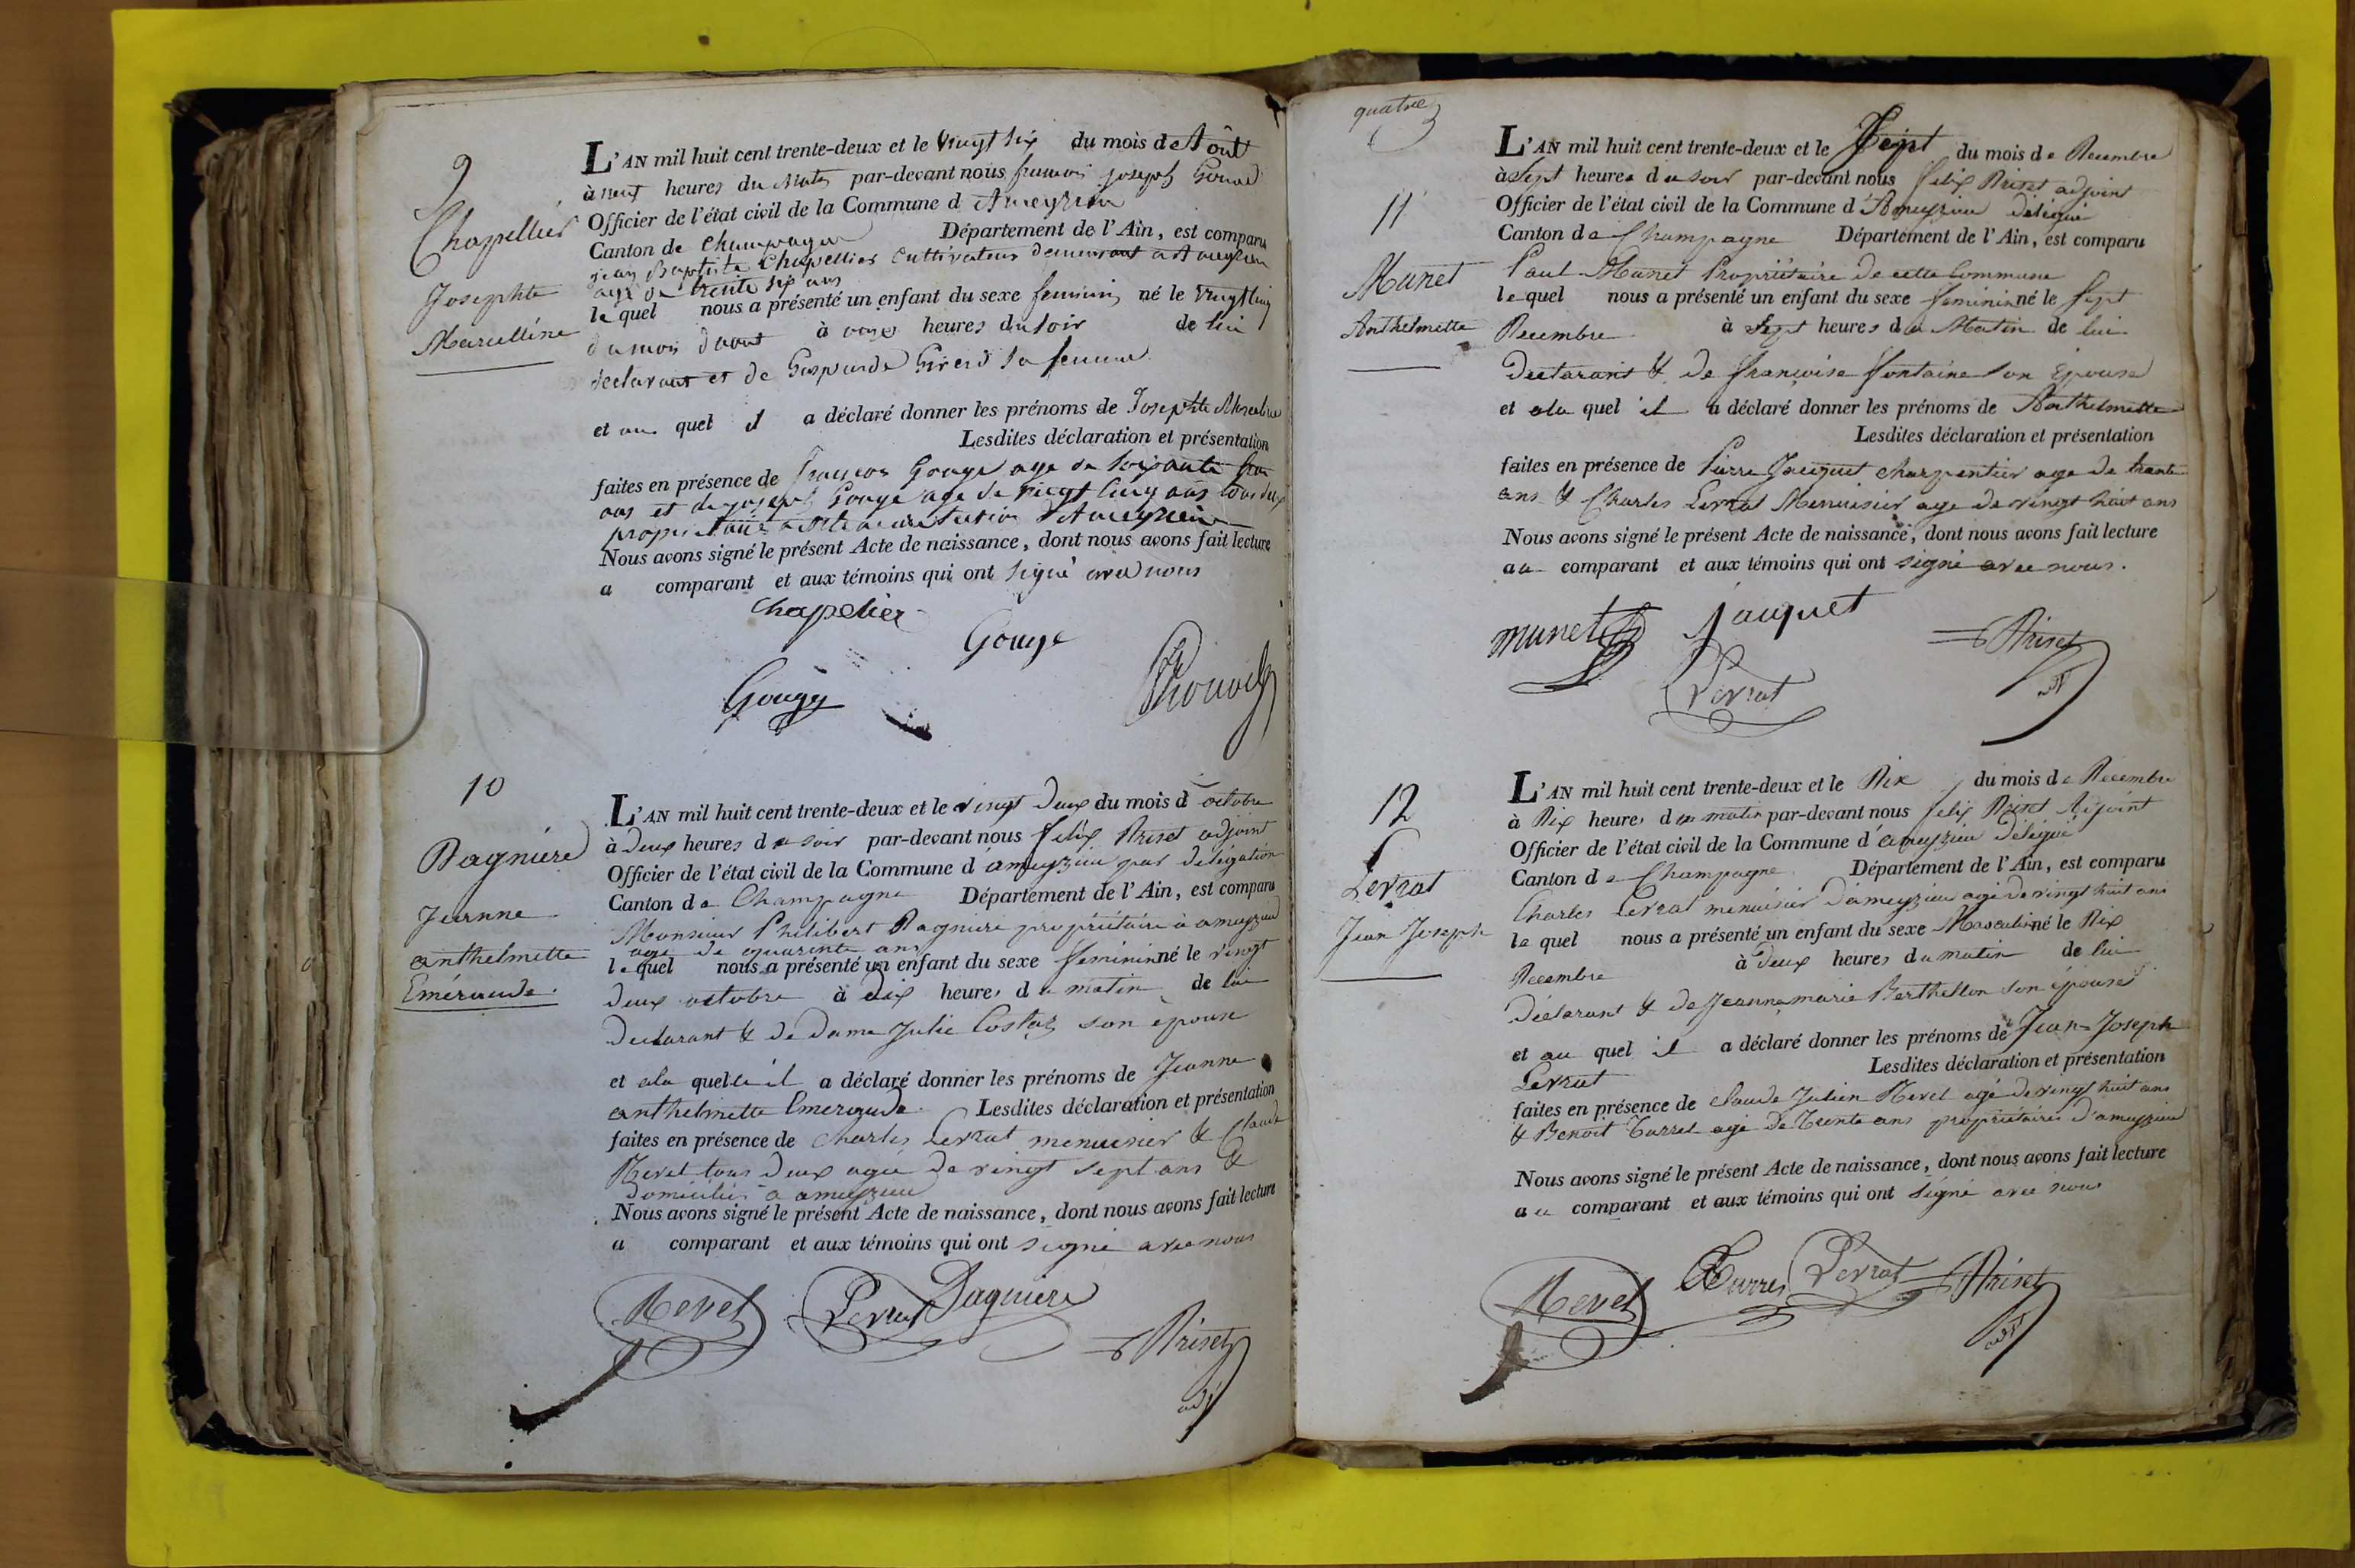 9
Chapellier
Josephte
Marcelline
L'AN mil huit cent trente-deux et le vingt six du mois de Août
à neuf heures du Matin par-devant nous françois joseph
Officier de l'état civil de la Commune d'Ameyzieu
Canton de Champagne Département de l'Ain, est comparu
jean Baptiste Chapellier cultivateur demeurant a Ameyzieu
agé de trente six ans
lequel nous a présenté un enfant du sexe feminin né le vingt cinq
du mois d'aout à onze heures du soir de lui
declarant et de Gasparde sa femme
et au quel il a déclaré donner les prénoms de Josephte Marceline
Lesdites déclaration et présentation
faites en présence de François Gouge age de soixante
ans et de joseph Gouge age de vingt cinq ans tous deux
propriétaire d'Ameyzieu
Nous avons signé le présent Acte de naissance, dont nous avons fait lecture
a comparant et aux témoins qui ont signé avec nous
Chapelier
Gouge
Gouge
10
Dagniere
Jeanne
anthelmette
Emeraude
L'AN mil huit cent trente-deux et le vingt deux du mois d'octobre
à deux heures du soir par-devant nous felix Briset adjoint
Officier de l'état civil de la Commune d'ameyzieu par délégation
Canton de Champagne Département de l'Ain, est comparu
Monsieur Philibert Dagniere propriétaire à ameyzieu
age de quarante ans
lequel nous a présenté un enfant du sexe feminin né le vingt
deux octobre à dix heures du matin de lui
declarant & de dame Julie Costaz son epouse
et a la quelle il a déclaré donner les prénoms de Jeanne
anthelmette Emeraude Lesdites déclaration et présentation
faites en présence de Charles Levrat menuisier & Claude
Revel tous deux agés de vingt sept ans &
domiciliés à ameyzieu
Nous avons signé le présent Acte de naissance, dont nous avons fait lecture
a comparant et aux témoins qui ont signé avec nous
Revel Levrat Dagniere
Briset
adj
quatre
11
Munet
Anthelmette
L'AN mil huit cent trente-deux et le Sept du mois de Decembre
à Sept heures du soir par-devant nous felix Briset adjoint
Officier de l'état civil de la Commune d'Ameyzieu délégué
Canton de Champagne Département de l'Ain, est comparu
Paul Munet Propriétaire de cette Commune
lequel nous a présenté un enfant du sexe feminin né le sept
Decembre à Sept heures du Matin de lui
Declarant & de françoise fontaine son Epouse
et a la quel il a déclaré donner les prénoms de Anthelmette
Lesdites déclaration et présentation
faites en présence de Pierre Jacquet charpentier age de trente
ans & Charles Levrat Menuisier age de vingt huit ans
Nous avons signé le présent Acte de naissance, dont nous avons fait lecture
au comparant et aux témoins qui ont signé avec nous.
munet Jauquet
Briset
Levrat
adj
12
Levrat
Jean Joseph
L'AN mil huit cent trente-deux et le Dix du mois de Decembre
à Dix heures du matin par-devant nous felix Briset Adjoint
Officier de l'état civil de la Commune d'ameyzieu délégué
Canton de Champagne Département de l'Ain, est comparu
Charles Levrat menuisier d'ameyzieu agé de vingt huit ans
lequel nous a présenté un enfant du sexe Masculin né le Dix
Decembre à deux heures du matin de lui
Déclarant & de Jeanne marie Berthellon son épouse
et au quel il a déclaré donner les prénoms de Jean-Joseph
Levrat Lesdites déclaration et présentation
faites en présence de claude Julien Revel agé de vingt huit ans
& Benoit Turrel agé de trente ans propriétaires d'ameyzieu
Nous avons signé le présent Acte de naissance, dont nous avons fait lecture
au comparant et aux témoins qui ont signé avec nous
Revel Levrat Briset
adj